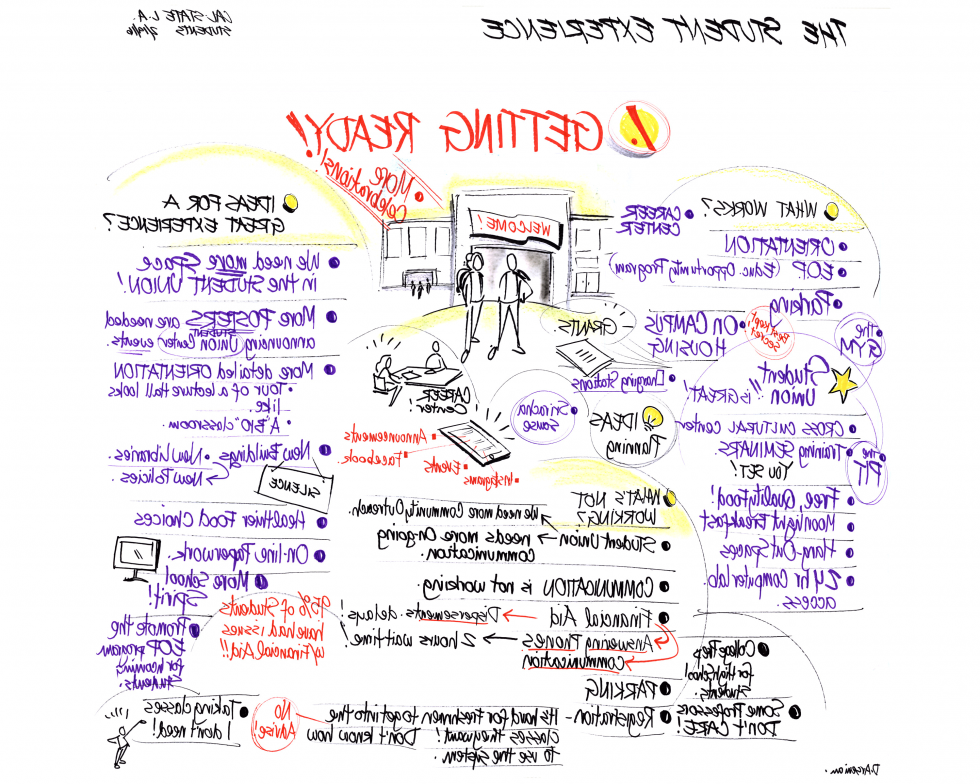 THE STUDENT EXPERIENCE
CAL-STATE L.A.
STUDENTS
! GETTING READY!
More
Celebrations!
WELCOME!
WHAT WORKS?
CAREER
CENTER
ORIENTATION
EOP (Educ. Opportunity Program)
Parking
the
GYM
Best kept
secret
ON CAMPUS
HOUSING
GRANTS
Student
Union !! is GREAT
Charging Stations
CROSS CULTURAL Center
the
PIT
Training SEMINARS
YOU SET!
Free, Quality Food!
Moonlight Breakfast
Hang-Out Spaces
24 hr Computer lab
access.
College Prep
for High School
Students.
Some Professors
DON'T CARE!
IDEAS
Planning
Sriracha
Sause
CAREER
Center
Announcements
Facebook
Events
Instagrams
WHAT'S NOT
WORKING?
We need more Community Outreach.
Student Union → needs more Ongoing
Communication.
COMMUNICATION is not working.
Financial Aid → Dispersements. delays!
Answering Phones → 2 hours wait time!
Communication
PARKING
Registration - It's hard for Freshmen to get into the
classes they want! Don't know how
to use the system.
No
Advise!
95% of Students
have had issues
w/Financial Aid!!
IDEAS FOR A
GREAT EXPERIENCE?
We need more Space
in the STUDENT UNION!
More POSTERS are needed
announcing STUDENT Union Center events.
More detailed ORIENTATION
• Tour of a Lecture Hall looks
like.
• A "BIO" classroom.
New Buildings • New Libraries.
New Policies
SILENCE
Healthier Food Choices
On-line Paperwork.
More School
Spirit!
Promote the
EOP program
for incoming
students.
Taking classes
I don't need!